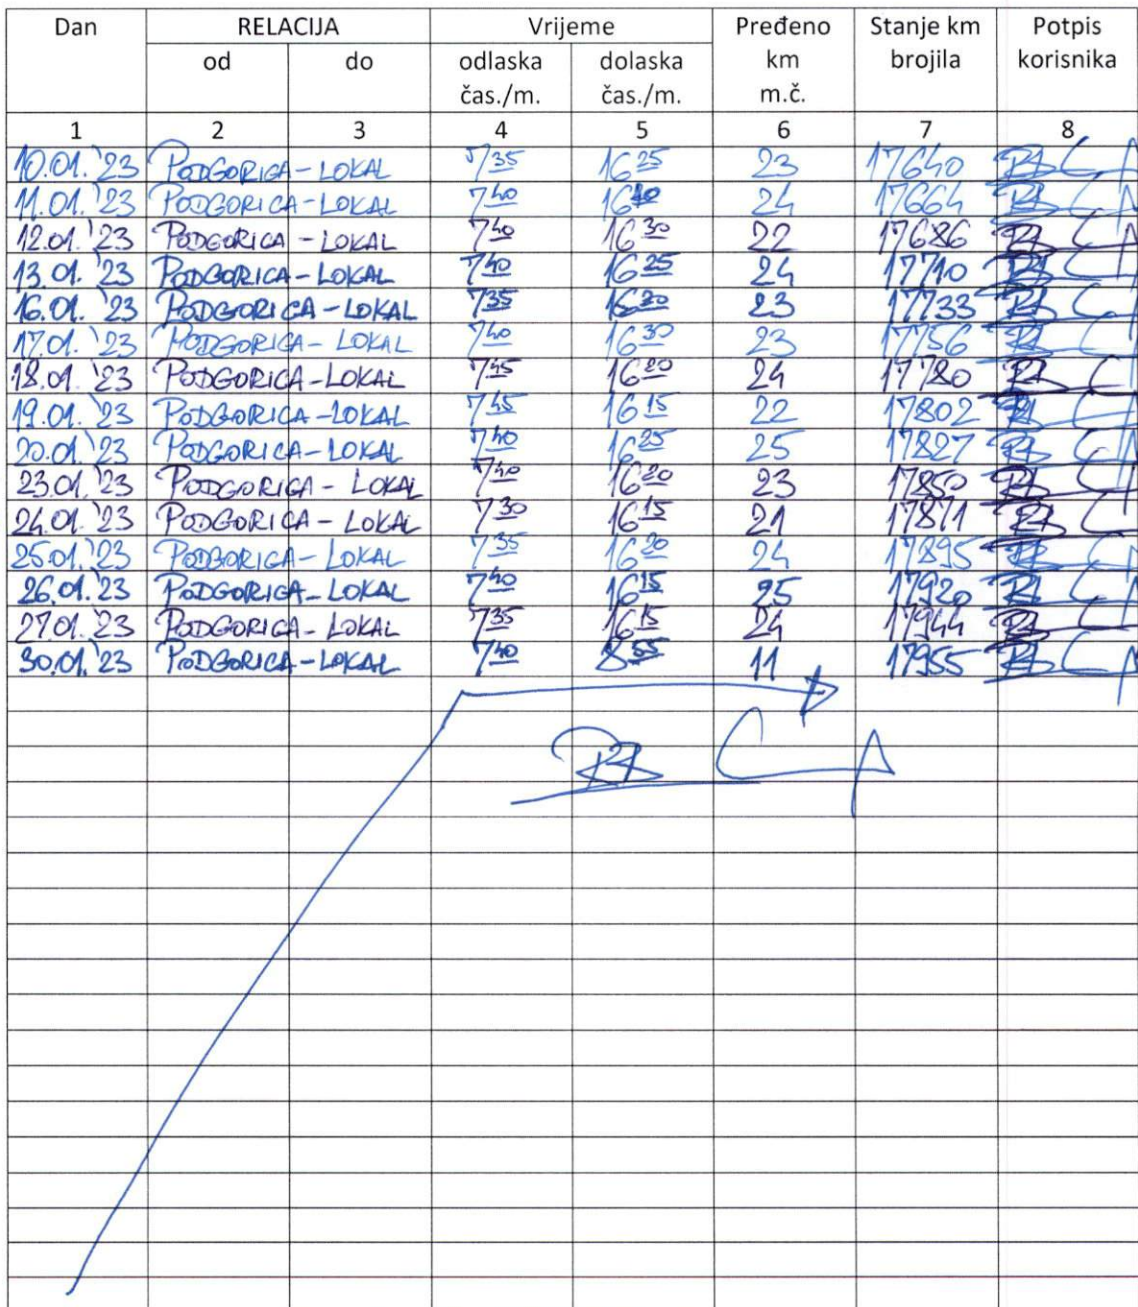 Dan RELACIJA Vrijeme Pređeno Stanje km Potpis
od do odlaska dolaska km brojila korisnika
čas./m. čas./m. m.č.
1 2 3 4 5 6 7 8
10.01.'23 PODGORICA-LOKAL 7 35 16 25 23 17640
11.01.'23 PODGORICA-LOKAL 7 40 24 17664
12.01.'23 PODGORICA-LOKAL 7 40 16 30 22 17686
13.01.'23 PODGORICA-LOKAL 7 40 16 25 24 17710
16.01.'23 PODGORICA-LOKAL 7 35 16 20 23 17733
17.01.'23 PODGORICA-LOKAL 7 40 16 30 23 17756
18.01.'23 PODGORICA-LOKAL 7 45 16 20 24 17780
19.01.'23 PODGORICA-LOKAL 7 45 16 15 22 17802
20.01.'23 PODGORICA-LOKAL 7 40 16 25 25 17827
23.01.'23 PODGORICA-LOKAL 7 40 16 20 23 17850
24.01.'23 PODGORICA-LOKAL 7 30 16 15 21 17871
25.01.'23 PODGORICA-LOKAL 7 35 16 20 24 17895
26.01.'23 PODGORICA-LOKAL 7 40 16 15 25 17920
27.01.'23 PODGORICA-LOKAL 7 35 16 15 24 17944
30.01.'23 PODGORICA-LOKAL 7 40 8 55 11 17955